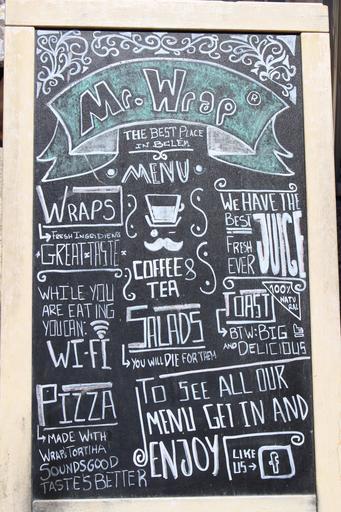 Mr. Wrap ®
THE BEST PLACE
IN BELÉM
MENU
WRAPS
FRESH INGRIDIENS
GREAT TASTE
WHILE YOU
ARE EATING
YOU CAN:
WI-FI
PIZZA
MADE WITH
WRAPS TORTIHA
SOUNDSGOOD
TASTE'S BETTER
COFFEE &
TEA
SALADS
YOU WILL DIE FOR THEM
WE HAVE THE
BEST
FRESH
EVER
JUICE
100%
NATU
RAL
TOAST
BTW: BIG
AND DELICIOUS
TO SEE ALL OUR
MENU GET IN AND
ENJOY
LIKE
US
f